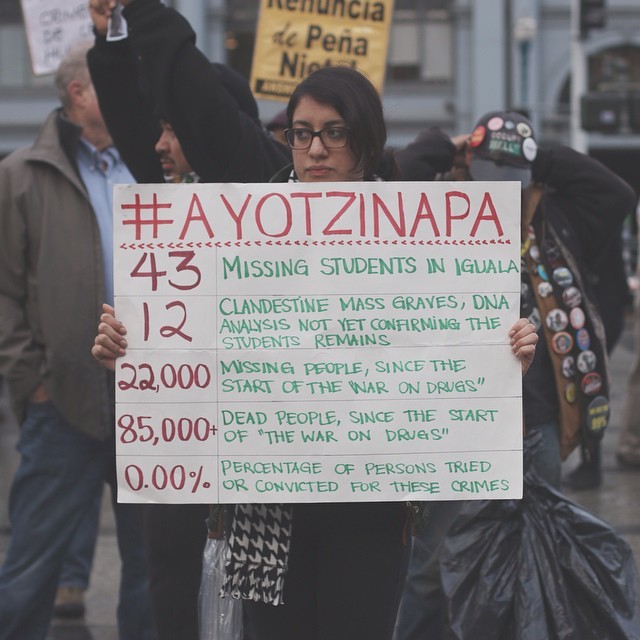 CRIMEN
DE
Renuncia
de Peña
#AYOTZINAPA
43 MISSING STUDENTS IN IGUALA
12 CLANDESTINE MASS GRAVES, DNA
ANALYSIS NOT YET CONFIRMING THE
STUDENTS REMAINS
22,000 MISSING PEOPLE, SINCE THE
START OF THE "WAR ON DRUGS"
85,000+ DEAD PEOPLE, SINCE THE START
OF "THE WAR ON DRUGS"
0.00% PERCENTAGE OF PERSONS TRIED
OR CONVICTED FOR THESE CRIMES